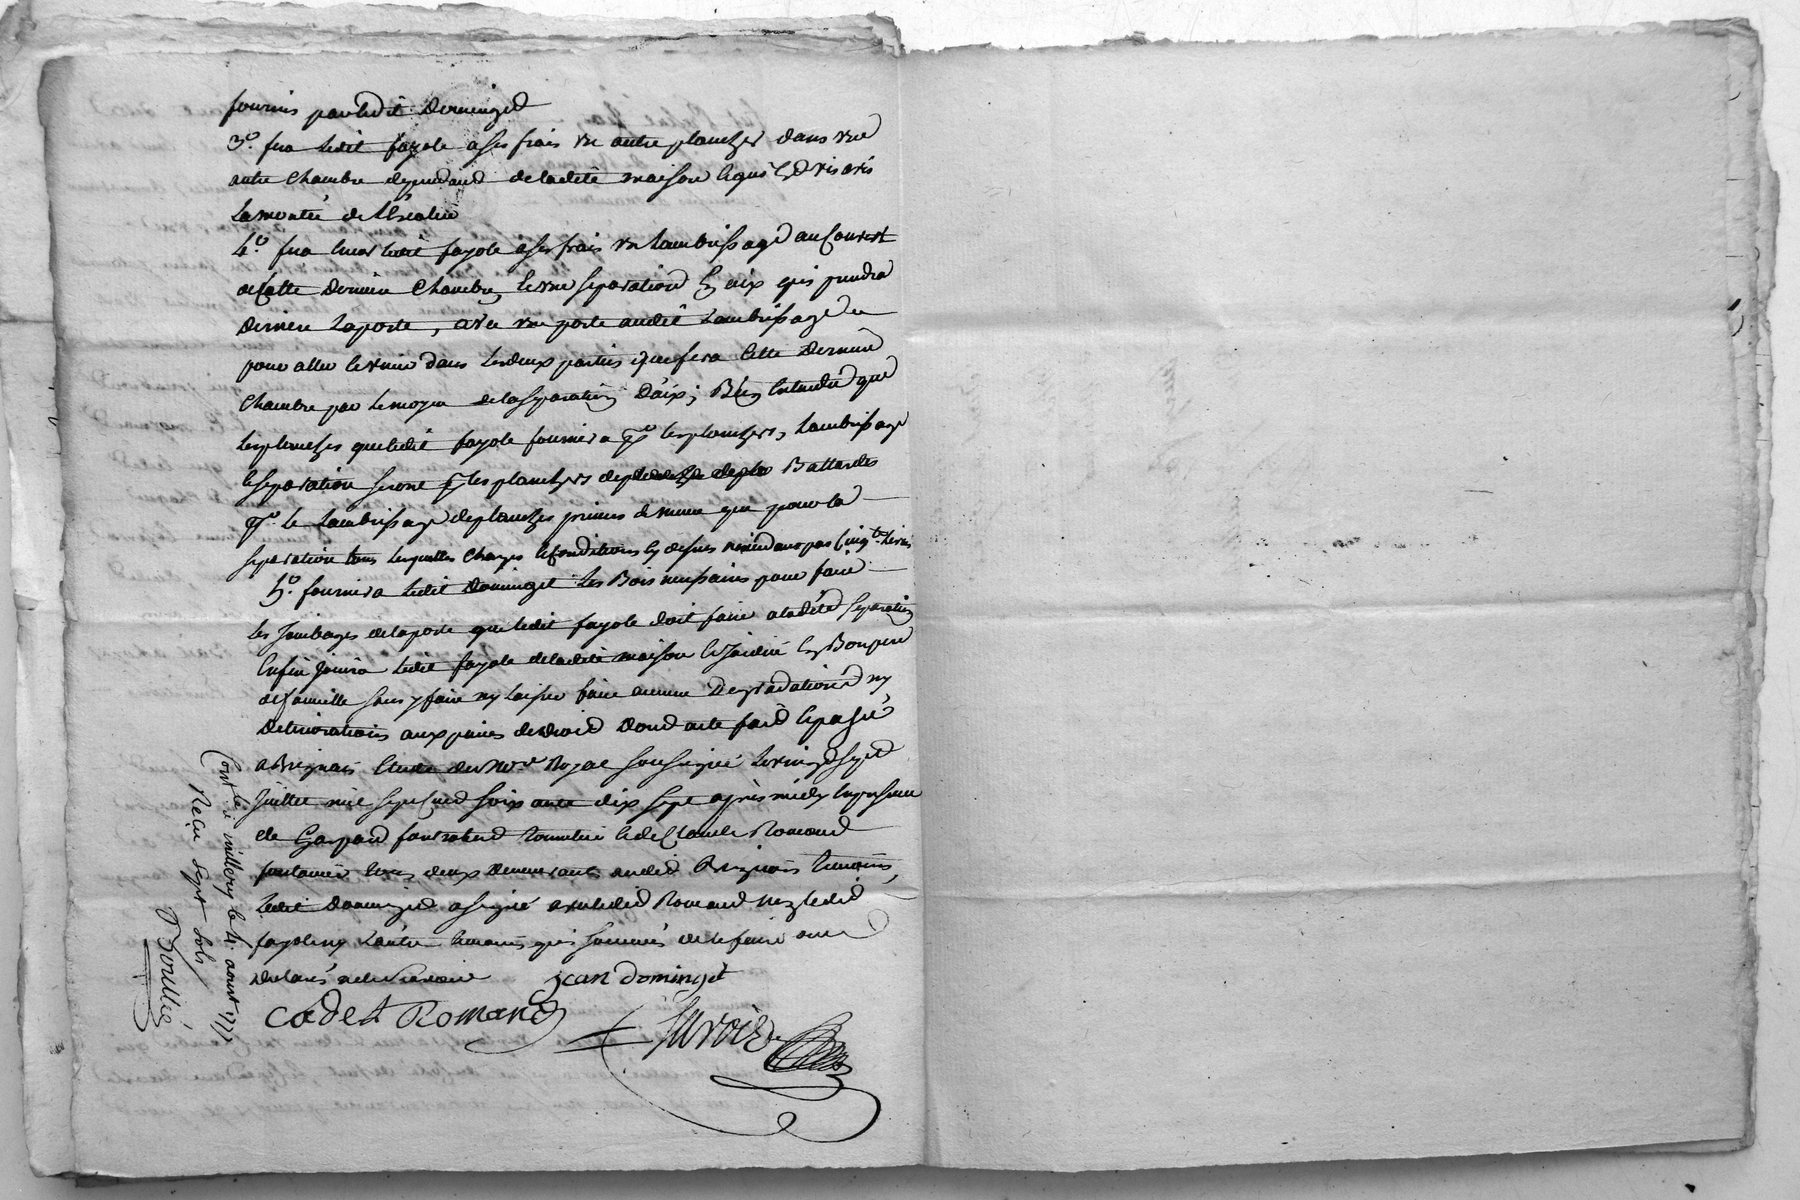 fournis par ledit Dominget
3.° fera ledit fayole a ses frais un autre plancher dans une
autre chambre dependand de ladite maison et qui est vis avis
la montée de l'escalier
4.° fera encor ledit fayole a ses frais un lambrissage au couvert
de cette derniere chambre, et une separation en aix qui prendra
derriere la porte, avec une porte audit lambrissage
pour aller et venir dans les deux parties que fera cette derniere
chambre par le moyen de la separation d'aix; Bien entendu que
les planches que ledit fayole fournira pr les planchers, lambrissage
et separation seront pr les planchers de Battardes
pr le lambrissage de planches primes de meme que pour la
separation tous lesquelles charges et conditions cy dessus n'excedant pas cinqte livres
5.° fournira ledit Domingé les Bois necessaires pour faire
les jambages de la porte que ledit fayole doit faire a ladite separation
Enfin jouira ledit fayole de ladite maison et jardin en Bon pere
de famille sans y faire ny laisser faire aucune degradation ny
deteriorations aux peines de droit dont acte fait et passé
a Brignais etude du nore Royal soussigné le vingt sept
juillet mil sept cent soixante dix sept après midy en presence
de Gaspard tonnelier et de Claude Romand
tous deux demeurants audit Brignais temoins,
ledit Domingé a signé avec ledit Romand non ledit
fayole ny l'autre temoin qui sommés de le faire ont
declarés ne le scavoir
jean domingét
Cadet Romand
Contlé a millery le 4. aoust 1777
Reçu sept sols